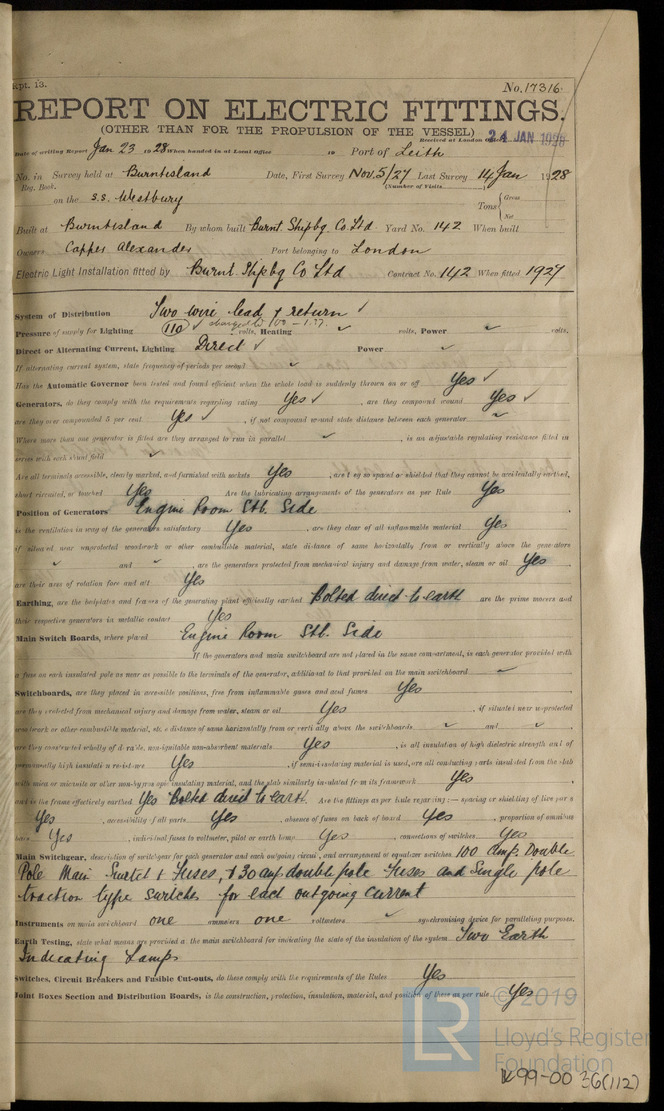 Rpt. 13. No. 17316.
REPORT ON ELECTRIC FITTINGS.
(OTHER THAN FOR THE PROPULSION OF THE VESSEL)
Received at London Office 24 JAN 1928
Date of writing Report Jan 23 1928 When handed in at Local Office 19 Port of Leith
No. in Survey held at Burntisland Date, First Survey Nov. 5/27 Last Survey 14 Jan 1928
Reg. Book. (Number of Visits
on the s.s. Westbury Tons { Gross
Net
Built at Burntisland By whom built Burnt. Shipbg. Co. Ltd Yard No. 142 When built
Owners Capper Alexander Port belonging to London
Electric Light Installation fitted by Burnt. Shipbg Co Ltd Contract No. 142 When fitted 1927
System of Distribution Two wire lead & return ✓
Pressure of supply for Lighting 110 ✓ volts, Heating ✓ volts, Power ✓ volts.
Direct or Alternating Current, Lighting Direct ✓ Power ✓
If alternating current system, state frequency of periods per second ✓
Has the Automatic Governor been tested and found efficient when the whole load is suddenly thrown on or off Yes ✓
Generators, do they comply with the requirements regarding rating Yes ✓, are they compound wound Yes ✓
are they over compounded 5 per cent Yes ✓, if not compound wound state distance between each generator ✓
Where more than one generator is fitted are they arranged to run in parallel ✓, is an adjustable regulating resistance fitted in
series with each shunt field ✓
Are all terminals accessible, clearly marked, and furnished with sockets Yes, are they so spaced or shielded that they cannot be accidentally earthed,
short circuited, or touched Yes Are the lubricating arrangements of the generators as per Rule Yes
Position of Generators Engine Room Stb. Side
is the ventilation in way of the generators satisfactory Yes, are they clear of all inflammable material Yes
if situated near unprotected woodwork or other combustible material, state distance of same horizontally from or vertically above the generators
✓ and ✓ are the generators protected from mechanical injury and damage from water, steam or oil Yes
are their axes of rotation fore and aft Yes
Earthing, are the bedplates and frames of the generating plant efficiently earthed Bolted direct to earth are the prime movers and
their respective generators in metallic contact Yes
Main Switch Boards, where placed Engine Room Stb. Side
If the generators and main switchboard are not placed in the same compartment, is each generator provided with
a fuse on each insulated pole as near as possible to the terminals of the generator, additional to that provided on the main switchboard ✓
Switchboards, are they placed in accessible positions, free from inflammable gases and acid fumes Yes
are they protected from mechanical injury and damage from water, steam or oil Yes, if situated near unprotected
woodwork or other combustible material, state distance of same horizontally from or vertically above the switchboards ✓ and ✓
are they constructed wholly of durable, non-ignitable non-absorbent materials Yes, is all insulation of high dielectric strength and of
permanently high insulation resistance Yes, if semi-insulating material is used, are all conducting parts insulated from the slab
with mica or micanite or other non-hygroscopic insulating material, and the slab similarly insulated from its framework Yes
and is the frame effectively earthed Yes Bolted direct to earth. Are the fittings as per Rule regarding:— spacing or shielding of live parts
Yes, accessibility of all parts Yes, absence of fuses on back of board Yes, proportion of omnibus
bars Yes, individual fuses to voltmeter, pilot or earth lamp Yes, connections of switches Yes
Main Switchgear, description of switchgear for each generator and each outgoing circuit, and arrangement of equaliser switches 100 Amp. Double
Pole Main Switch & Fuses, & 30 amp double pole Fuses and Single pole
traction type switches for each outgoing current
Instruments on main switchboard one ammeters one voltmeters ✓ synchronising device for paralleling purposes.
Earth Testing, state what means are provided at the main switchboard for indicating the state of the insulation of the system Two Earth
Indicating Lamps
Switches, Circuit Breakers and Fusible Cut-outs, do these comply with the requirements of the Rules Yes
Joint Boxes Section and Distribution Boards, is the construction, protection, insulation, material, and position of these as per rule Yes
© 2019
LR
Lloyd's Register
Foundation
W99-0036(112)